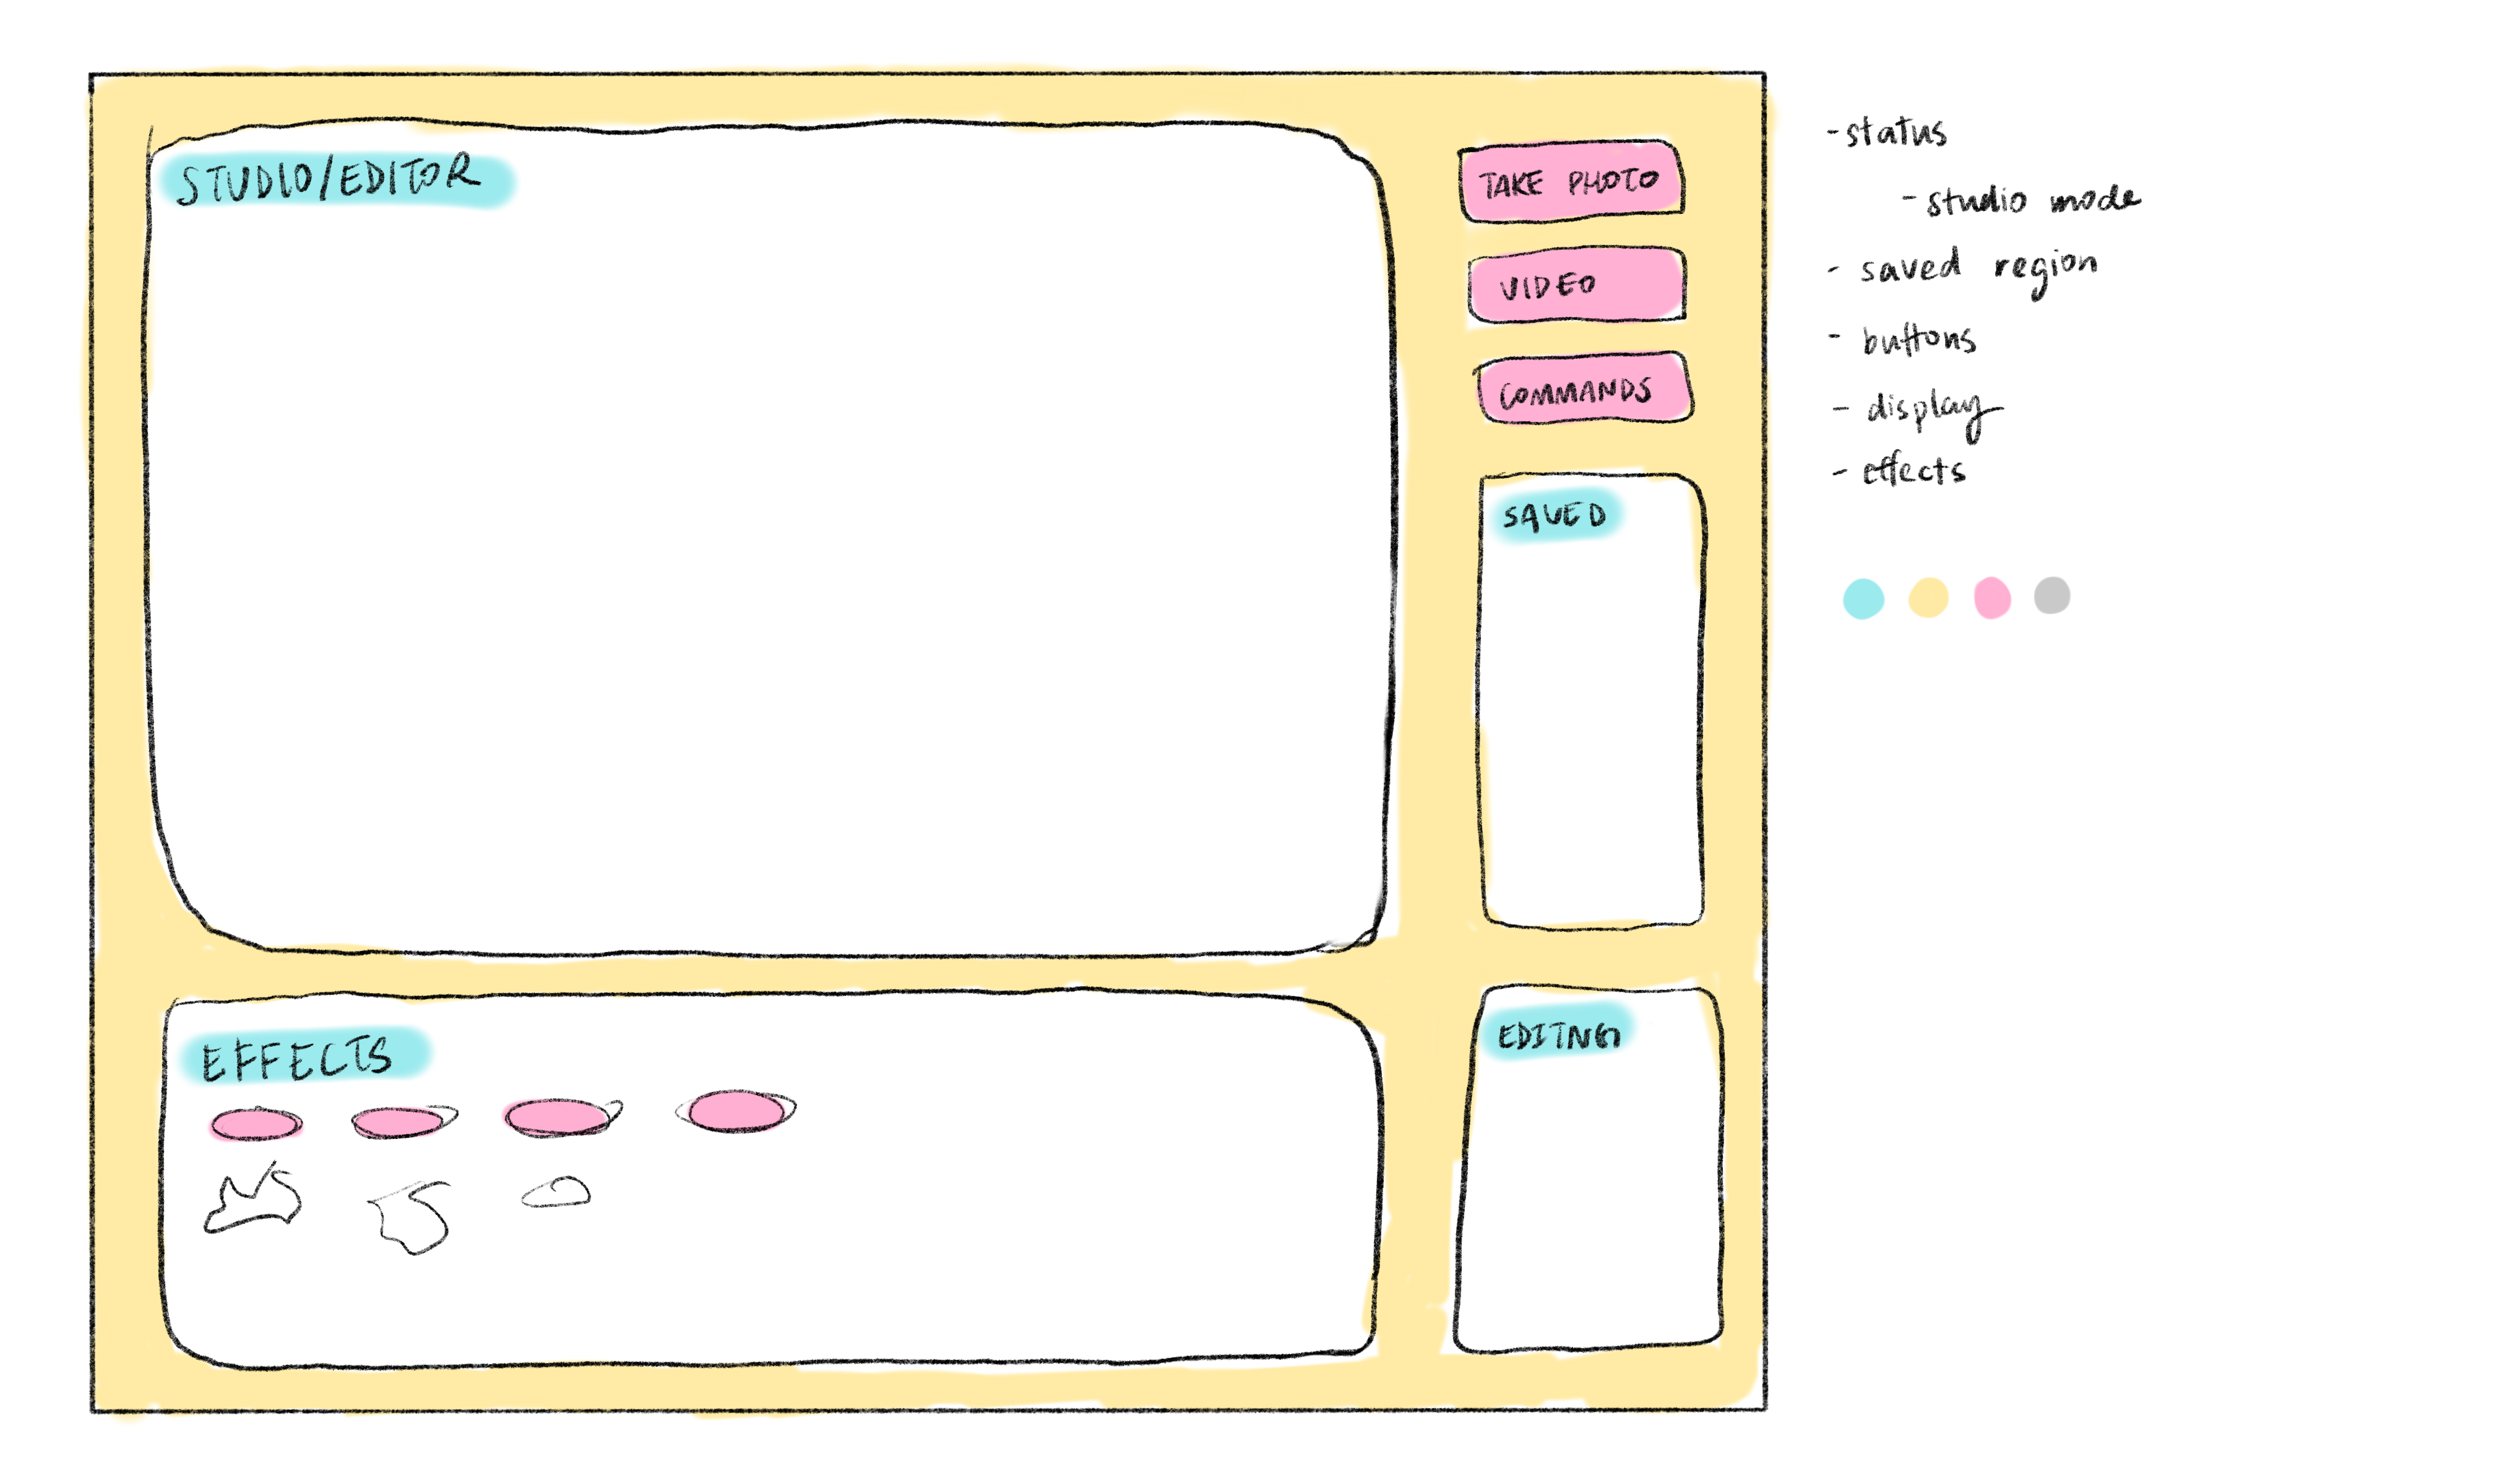 STUDIO/EDITOR
TAKE PHOTO
VIDEO
COMMANDS
SAVED
EFFECTS
EDITNG
-status
- studio mode
- saved region
- buttons
- display
- effects